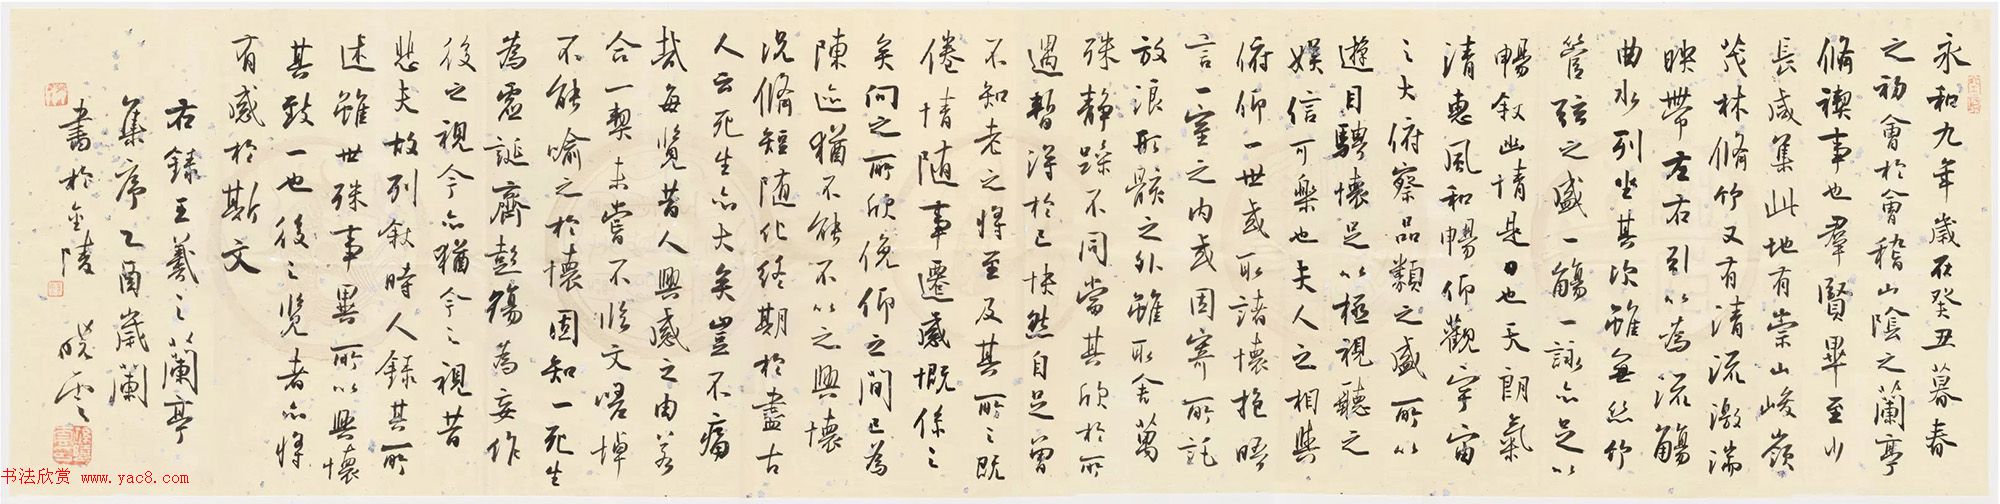 永和九年歲在癸丑暮春
之初會於會稽山陰之蘭亭
脩禊事也羣賢畢至少
長咸集此地有崇山峻嶺
茂林脩竹又有清流激湍
映帶左右引以為流觴
曲水列坐其次雖無絲竹
管弦之盛一觴一詠亦足以
暢敘幽情是日也天朗氣
清惠風和暢仰觀宇宙
之大俯察品類之盛所以
遊目騁懷足以極視聽之
娛信可樂也夫人之相與
俯仰一世或取諸懷抱晤
言一室之內或因寄所託
放浪形骸之外雖取舍萬
殊靜躁不同當其欣於所
遇暫得於己快然自足曾
不知老之將至及其所之既
倦情隨事遷感慨係之
矣向之所欣俛仰之間已為
陳迹猶不能不以之興懷
況脩短隨化終期於盡古
人云死生亦大矣豈不痛
哉每覽昔人興感之由若
合一契未嘗不臨文嗟悼
不能喻之於懷固知一死生
為虛誕齊彭殤為妄作
後之視今亦猶今之視昔
悲夫故列敘時人錄其所
述雖世殊事異所以興懷
其致一也後之覽者亦將
有感於斯文
右錄王羲之蘭亭
集序乙酉歲蘭
書於金陵
曉雲
书法欣赏 www.yac8.com